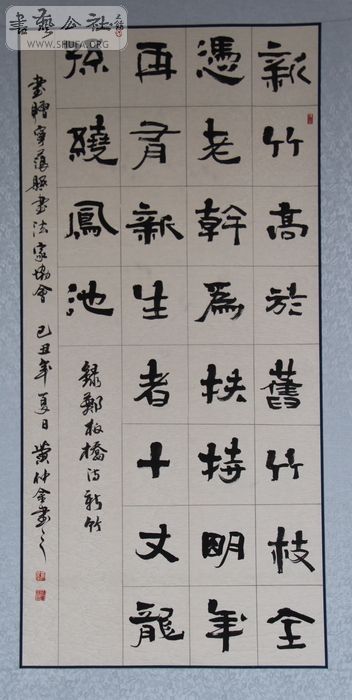 書藝公社
WWW.SHUFA.ORG
新竹高於舊竹枝全
憑老幹爲扶持明年
再有新生者十丈龍
孫繞鳳池
錄鄭板橋詩新竹
書贈 縣書法家協會 己丑年夏日 黄仲金書之